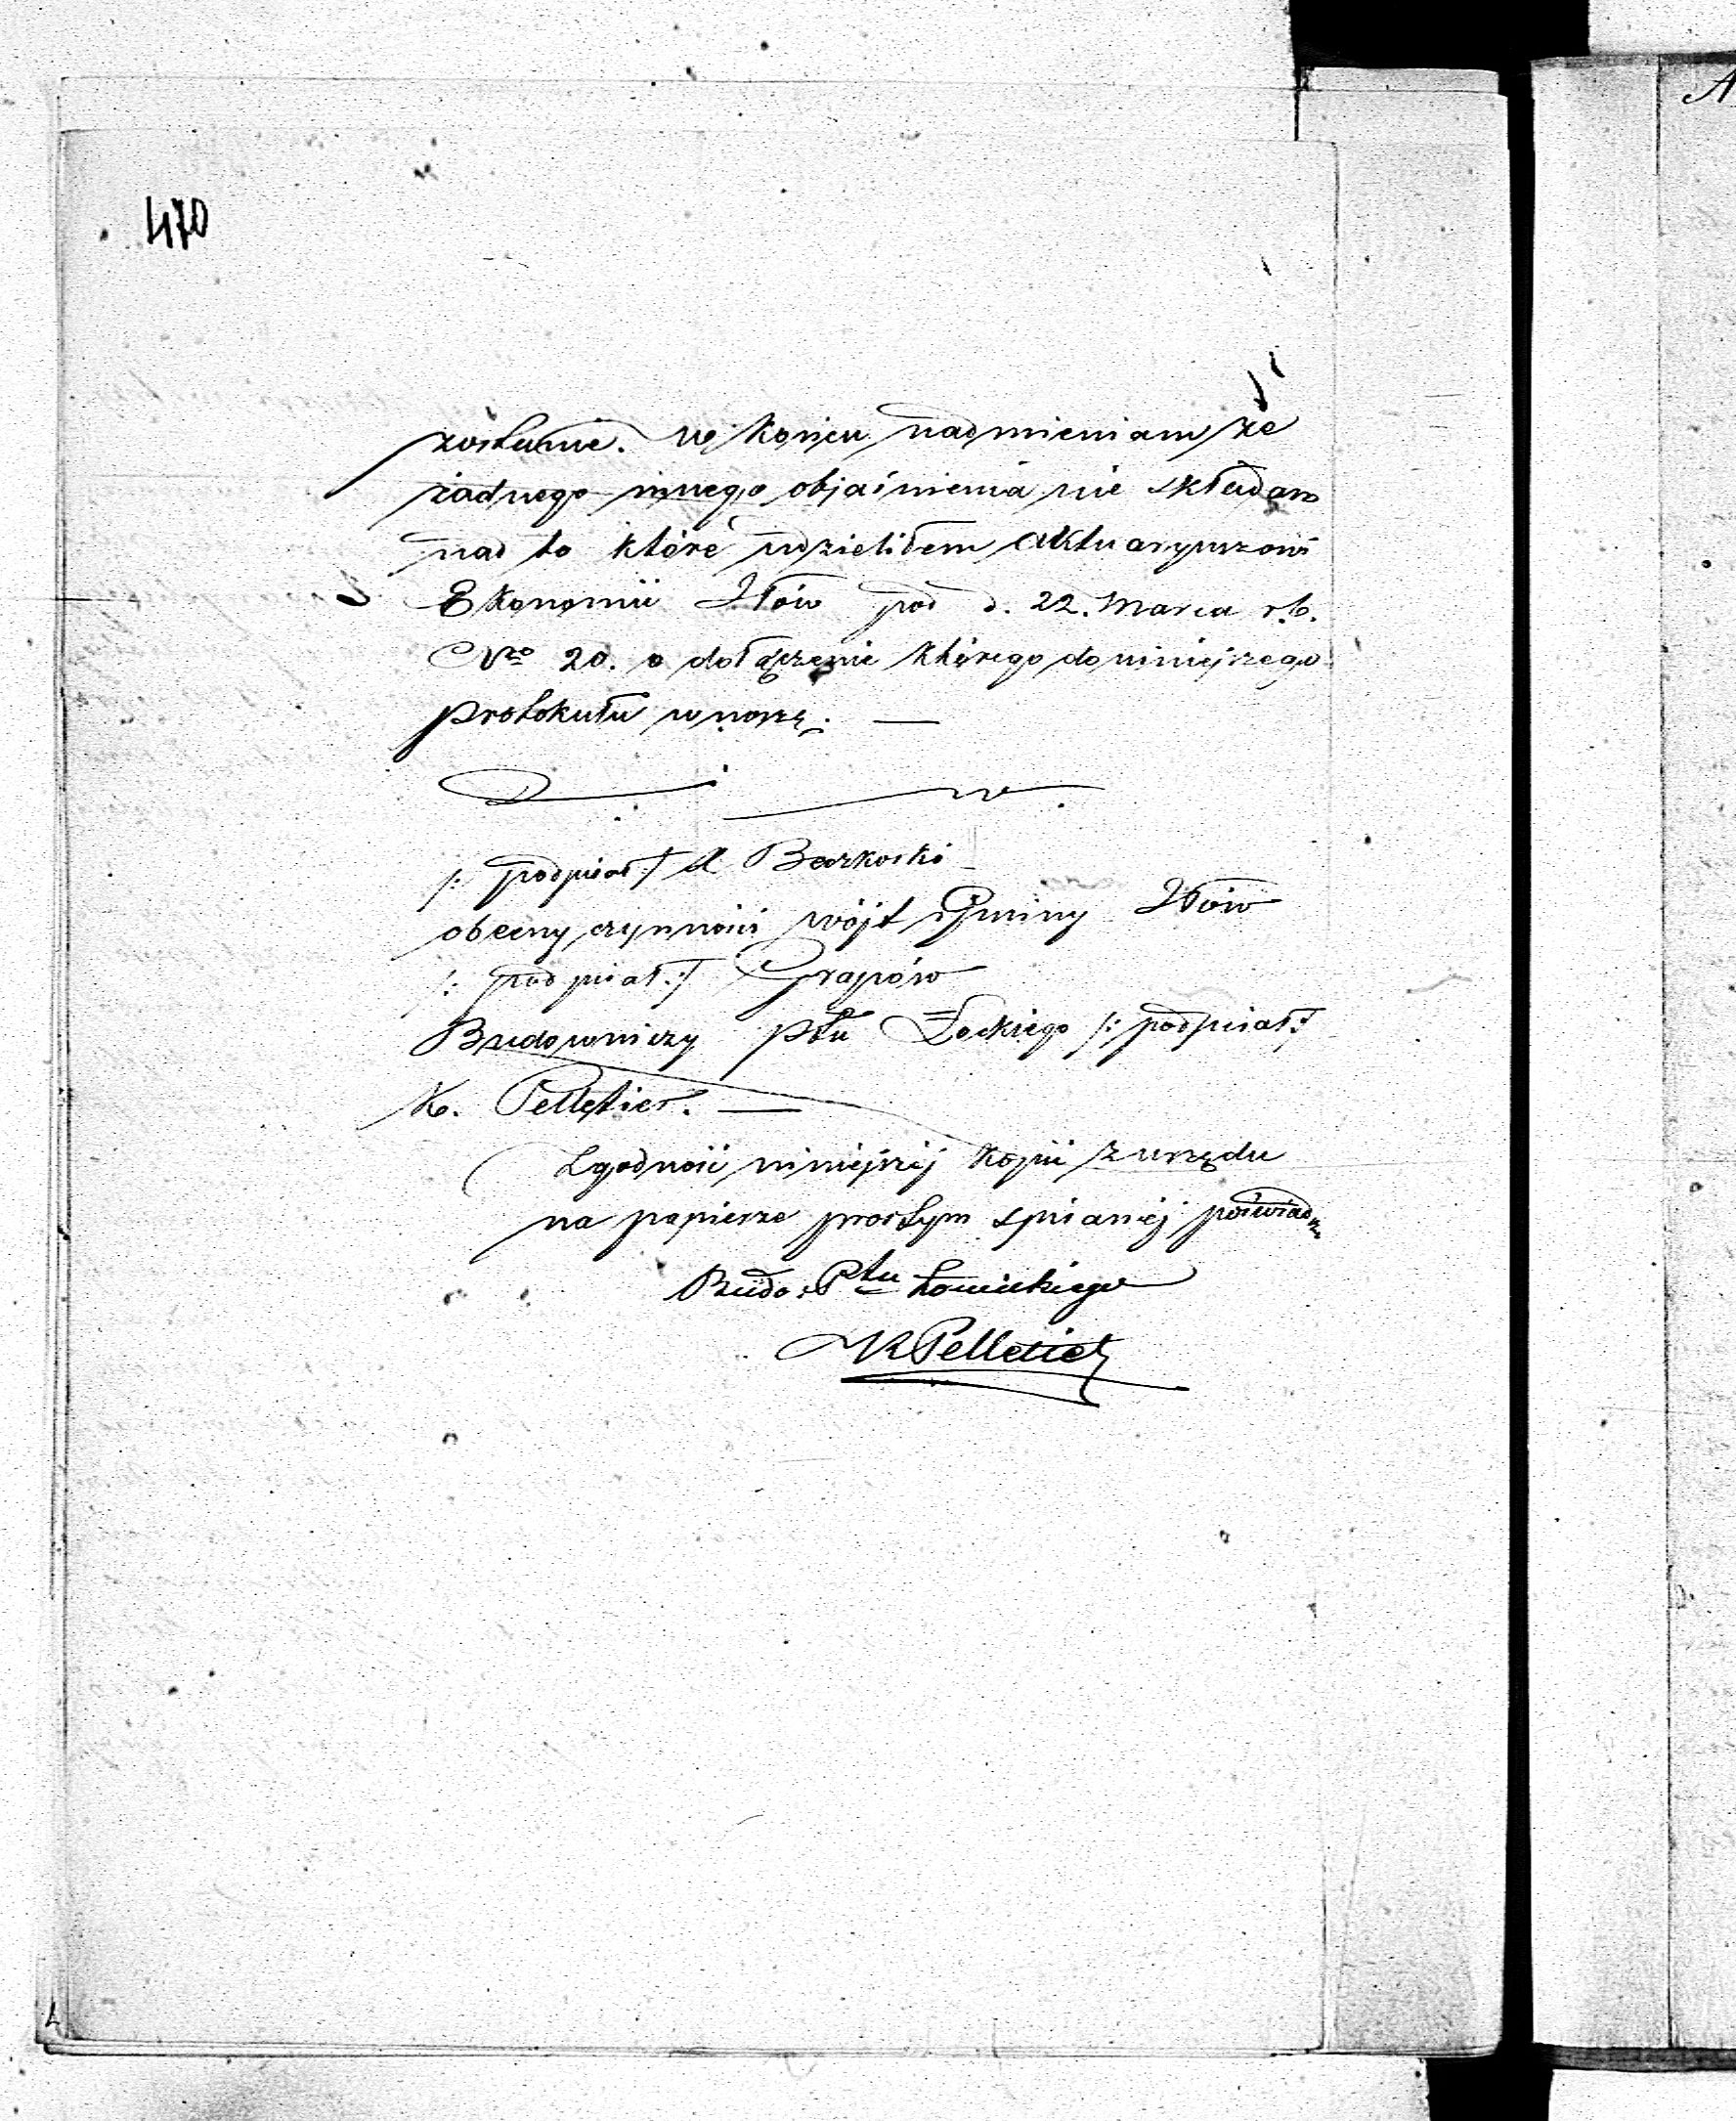 470
zostanie. w końcu nadmieniam że
żadnego innego objaśnienia nie składam
nad to które udzieliłem Aktuaryuszowi
Ekonomii Iłów pod d. 22. Marca r.b.
Nro 20. o dołączenie którego do niniejszego
protokułu wnoszę. —
/: podpisał :/ A Baczkoski
obecny czynności wójt Gminy Iłów
/: podpisał :/ Grapów
Budowniczy Ptu Łockiego /: podpisał :/
K. Pelletier. —
Zgodność niniejszej kopii z urzędu
na papierze prostym spisanej poświadcza
Budo: Ptu Łowickiego
K Pelletier